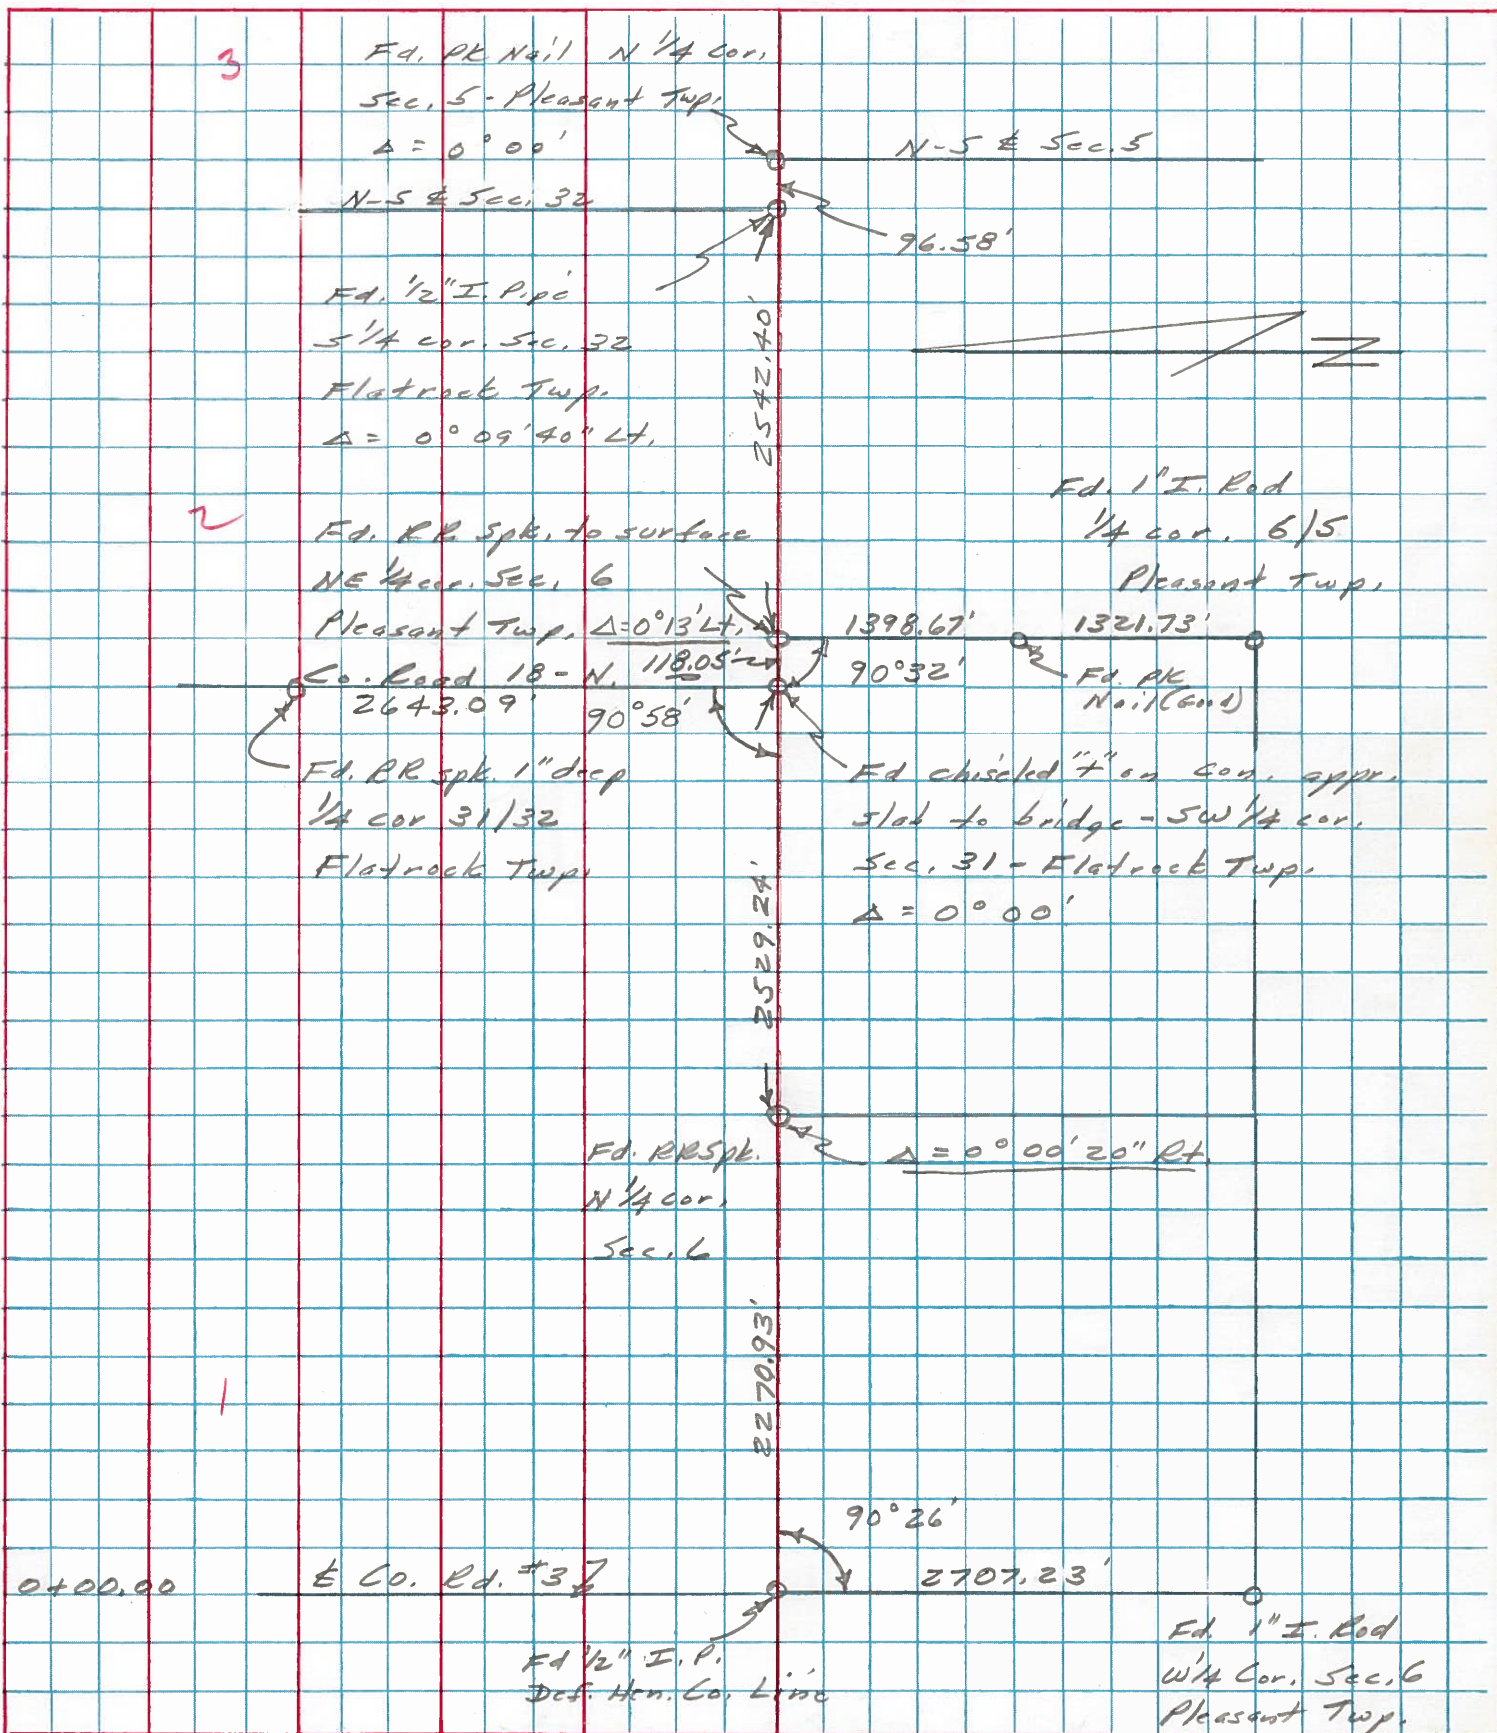 3
Fd. PK Nail N 1/4 cor.
Sec. 5 - Pleasant Twp.
Δ = 0° 00'
N-S ℄ Sec. 5
N-S ℄ Sec. 32
96.58'
Fd. 1/2" I. Pipe
S 1/4 cor. Sec. 32
Flatrock Twp.
Δ = 0° 09' 40" Lt.
2542.40'
N
2
Fd. RR Spk. to surface
NE 1/4 cor. Sec. 6
Pleasant Twp. Δ=0°13' Lt.
Fd. 1" I. Rod
1/4 cor. 6/5
Pleasant Twp.
1398.67'
1321.73'
118.05'
90°32'
Fd. PK
Nail (Good)
Co. Road 18 - N.
2643.09'
90°58'
Fd. RR spk. 1" deep
1/4 cor 31/32
Flatrock Twp.
Fd chiseled "+" on con. appr.
slab to bridge - SW 1/4 cor.
Sec. 31 - Flatrock Twp.
Δ = 0° 00'
2529.24'
Fd. RR Spk.
N 1/4 cor.
Sec. 6
Δ = 0° 00' 20" Rt.
1
2270.93'
90°26'
0+00.00
℄ Co. Rd. #37
2707.23'
Fd 1/2" I. P.
Def. Hen. Co. Line
Fd. 1" I. Rod
W 1/4 Cor. Sec. 6
Pleasant Twp.